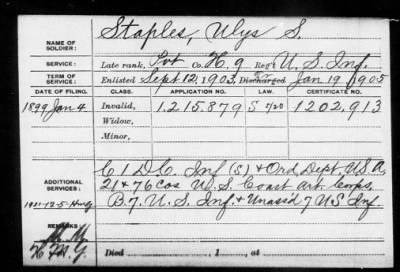 NAME OF SOLDIER: Staples, Ulys S.
SERVICE: Late rank, Pvt Co. H. 9 Reg't U. S. Inf.
TERM OF SERVICE: Enlisted Sept 12, 1903, Discharged Jan 19, 1905
DATE OF FILING. CLASS. APPLICATION NO. LAW. CERTIFICATE NO.
1899 Jan 4 Invalid, 1.215.879 1.202.913
Widow,
Minor,
ADDITIONAL SERVICES: C 1 D.C. Inf (S) & Ord Dept U.S.A.
21 & 76 Cos U. S. Coast Art. Corps,
B. 7. U. S. Inf. & Unass'd 7 U.S. Inf.
REMARKS:
Died , 1 , at